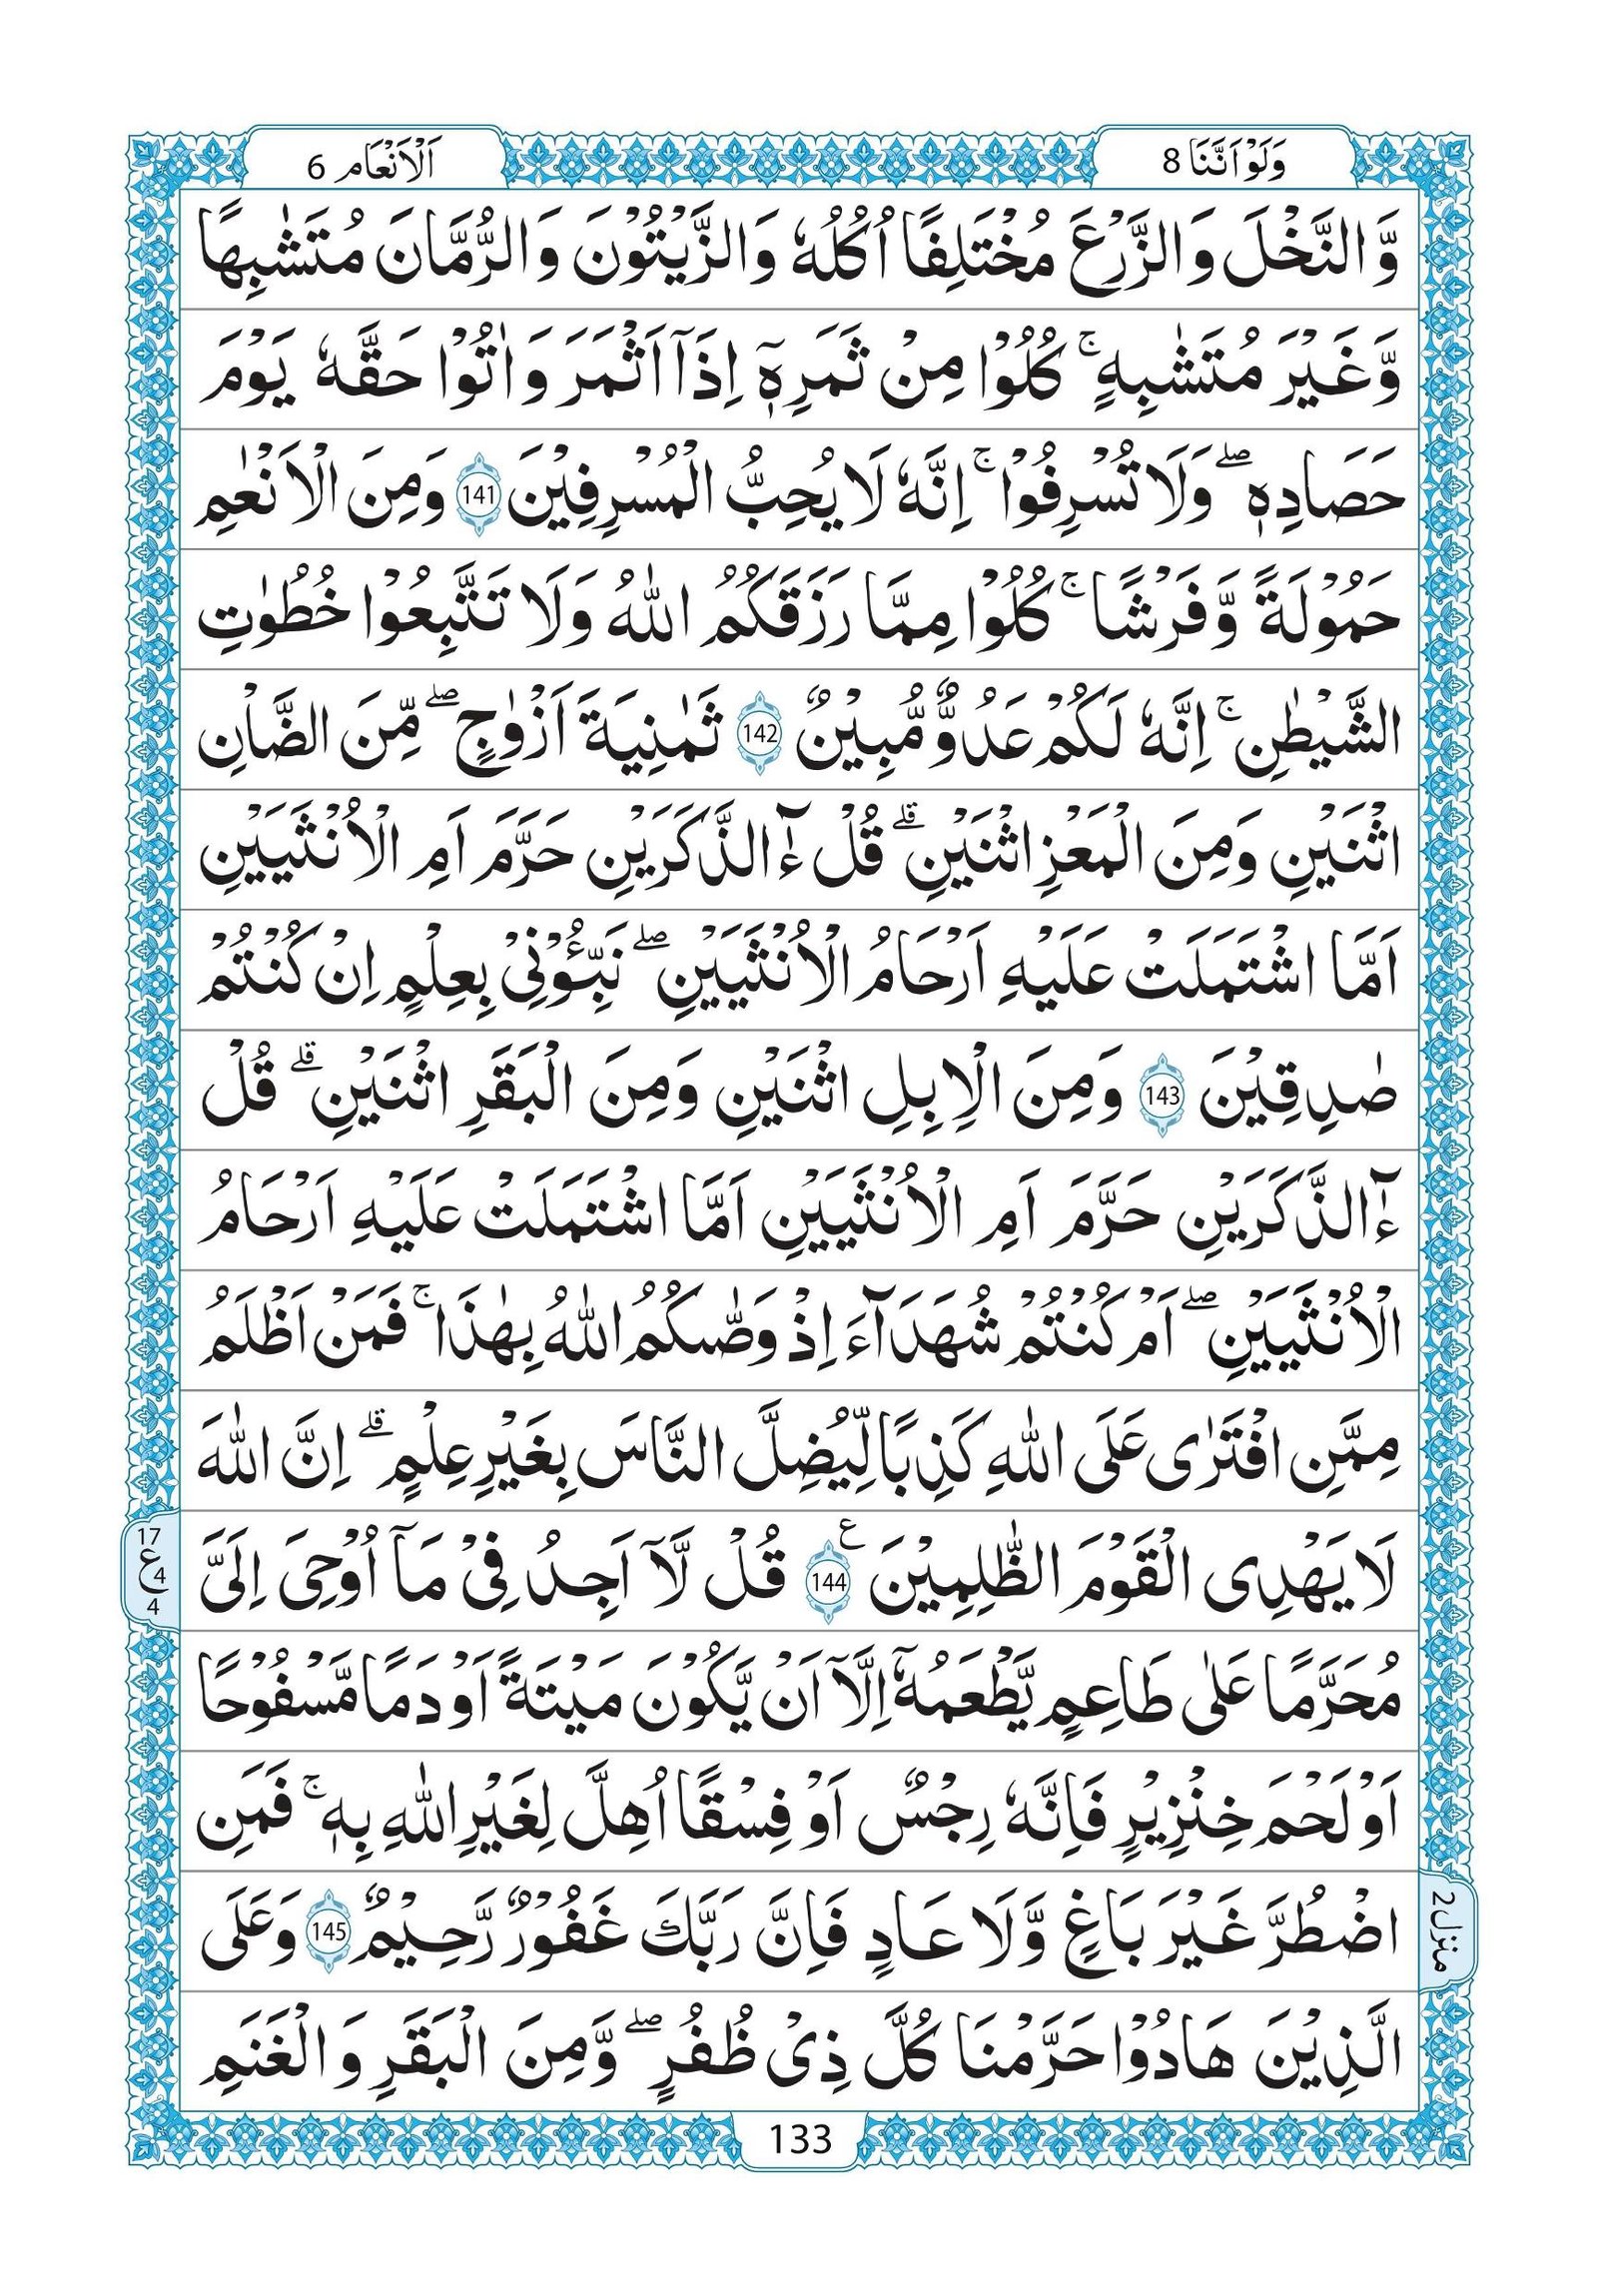 وَلَوْ اَنَّنَا 8
اَلْاَنْعَام 6
وَّالنَّخْلَ وَالزَّرْعَ مُخْتَلِفًا اُكُلُهٗ وَالزَّيْتُوْنَ وَالرُّمَّانَ مُتَشٰبِهًا
وَّغَيْرَ مُتَشٰبِهٍ ۚ كُلُوْا مِنْ ثَمَرِهٖٓ اِذَآ اَثْمَرَ وَاٰتُوْا حَقَّهٗ يَوْمَ
حَصَادِهٖ ۖ وَلَا تُسْرِفُوْا ۚ اِنَّهٗ لَا يُحِبُّ الْمُسْرِفِيْنَ 141 وَمِنَ الْاَنْعٰمِ
حَمُوْلَةً وَّفَرْشًا ۚ كُلُوْا مِمَّا رَزَقَكُمُ اللّٰهُ وَلَا تَتَّبِعُوْا خُطُوٰتِ
الشَّيْطٰنِ ۚ اِنَّهٗ لَكُمْ عَدُوٌّ مُّبِيْنٌ 142 ثَمٰنِيَةَ اَزْوٰجٍ ۖ مِّنَ الضَّاْنِ
اثْنَيْنِ وَمِنَ الْمَعْزِ اثْنَيْنِ ۗ قُلْ ءٰٓالذَّكَرَيْنِ حَرَّمَ اَمِ الْاُنْثَيَيْنِ
اَمَّا اشْتَمَلَتْ عَلَيْهِ اَرْحَامُ الْاُنْثَيَيْنِ ۖ نَبِّـُٔوْنِيْ بِعِلْمٍ اِنْ كُنْتُمْ
صٰدِقِيْنَ 143 وَمِنَ الْاِبِلِ اثْنَيْنِ وَمِنَ الْبَقَرِ اثْنَيْنِ ۗ قُلْ
ءٰٓالذَّكَرَيْنِ حَرَّمَ اَمِ الْاُنْثَيَيْنِ اَمَّا اشْتَمَلَتْ عَلَيْهِ اَرْحَامُ
الْاُنْثَيَيْنِ ۖ اَمْ كُنْتُمْ شُهَدَآءَ اِذْ وَصّٰىكُمُ اللّٰهُ بِهٰذَا ۚ فَمَنْ اَظْلَمُ
مِمَّنِ افْتَرٰى عَلَى اللّٰهِ كَذِبًا لِّيُضِلَّ النَّاسَ بِغَيْرِ عِلْمٍ ۗ اِنَّ اللّٰهَ
لَا يَهْدِى الْقَوْمَ الظّٰلِمِيْنَ 144 ع قُلْ لَّآ اَجِدُ فِيْ مَآ اُوْحِيَ اِلَيَّ
17
ع 4
4
مُحَرَّمًا عَلٰى طَاعِمٍ يَّطْعَمُهٗٓ اِلَّآ اَنْ يَّكُوْنَ مَيْتَةً اَوْ دَمًا مَّسْفُوْحًا
اَوْ لَحْمَ خِنْزِيْرٍ فَاِنَّهٗ رِجْسٌ اَوْ فِسْقًا اُهِلَّ لِغَيْرِ اللّٰهِ بِهٖ ۚ فَمَنِ
اضْطُرَّ غَيْرَ بَاغٍ وَّلَا عَادٍ فَاِنَّ رَبَّكَ غَفُوْرٌ رَّحِيْمٌ 145 وَعَلَى
منزل 2
الَّذِيْنَ هَادُوْا حَرَّمْنَا كُلَّ ذِيْ ظُفُرٍ ۖ وَّمِنَ الْبَقَرِ وَالْغَنَمِ
133